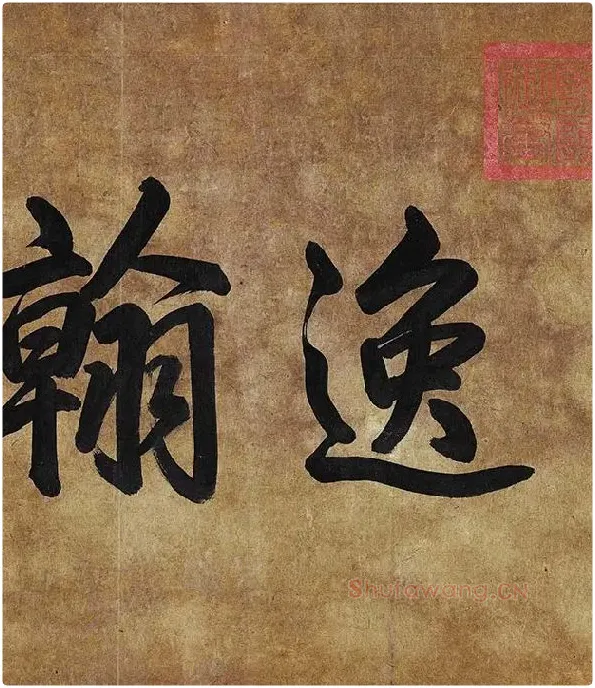 逸翰
Shufawang.CN